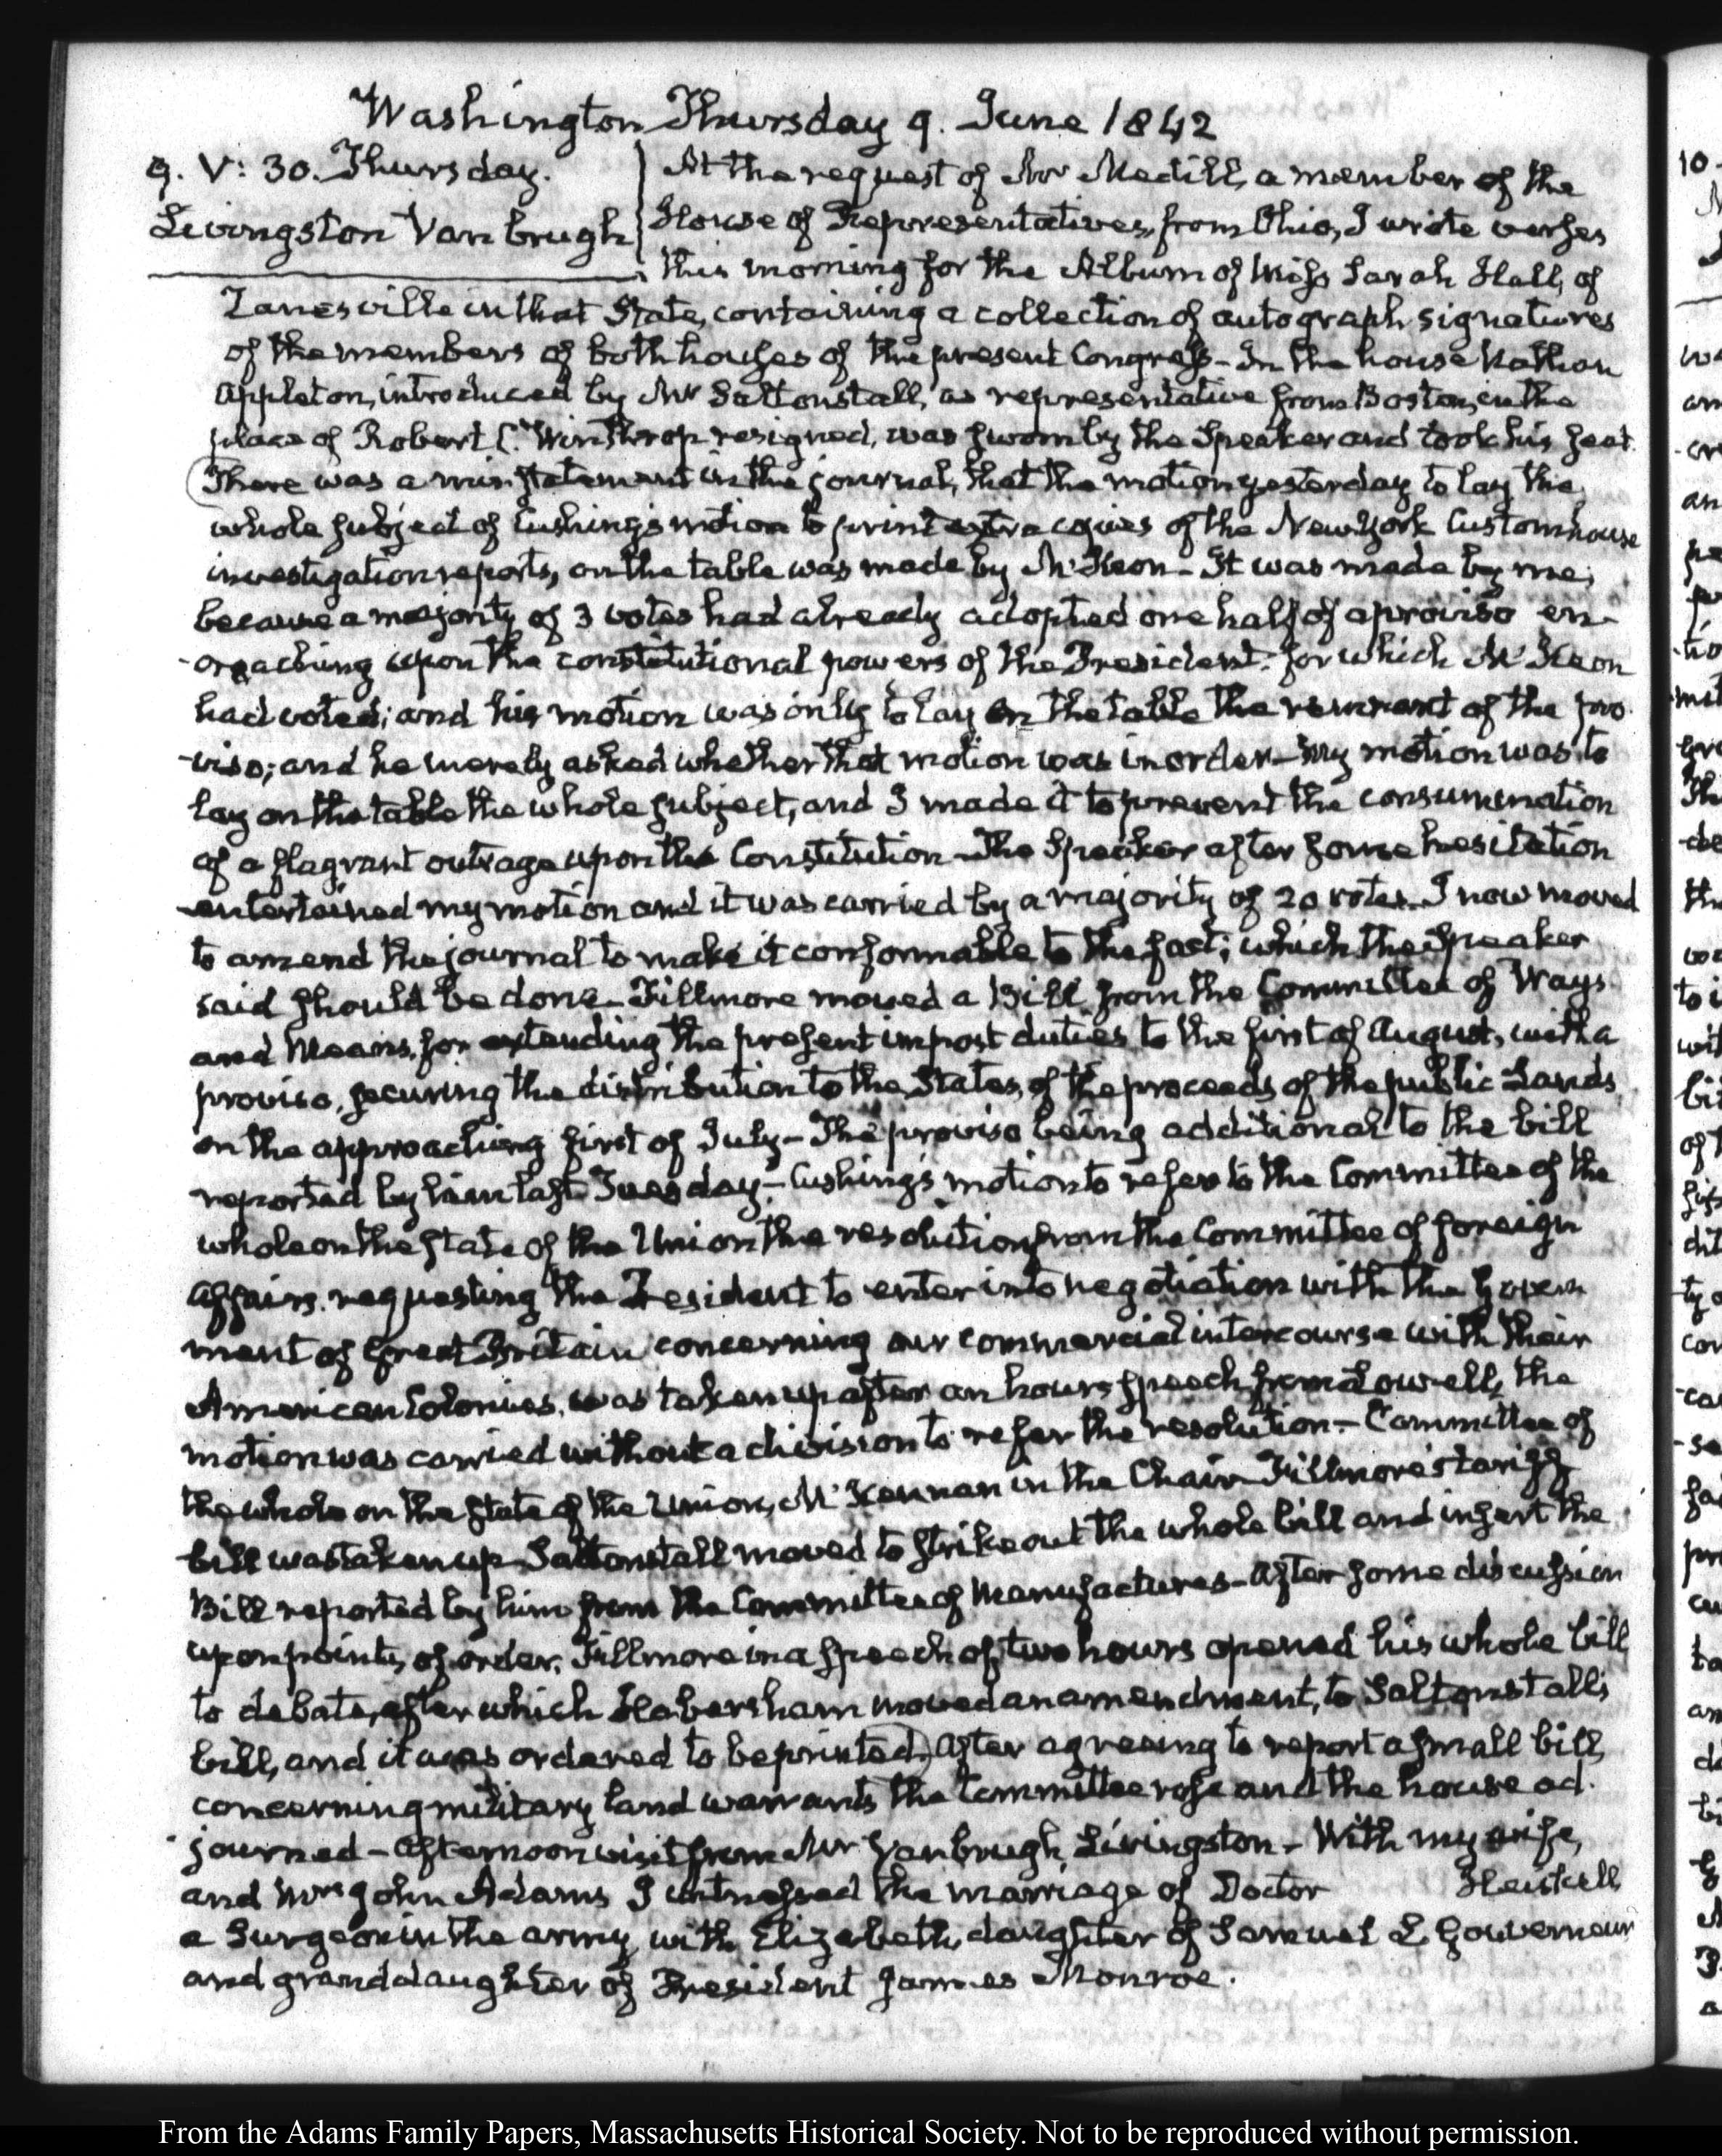 Washington Thursday 9. June 1842
9. V: 30. Thursday.
Livingston Van brugh
At the request of Mr Medill, a member of the
House of Representatives, from Ohio, I wrote verses
this morning for the Album of Miss Sarah Hall, of
Zanesville in that State, containing a collection of autograph signatures
of the members of both houses of the present Congress – In the house Nathan
Appleton, introduced by Mr Saltonstall, as representative from Boston, in the
place of Robert C. Winthrop resigned, was sworn by the Speaker and took his seat.
There was a misstatement in the journal, that the motion yesterday to lay the
whole subject of Cushing's motion to print extra copies of the New York Customhouse
investigation reports, on the table was made by McKeon – It was made by me;
because a majority of 3 votes had already adopted one half of a proviso en-
-croaching upon the constitutional powers of the President: for which McKeon
had voted; and his motion was only to lay on the table the remnant of the pro
-viso; and he merely asked whether that motion was in order – My motion was to
lay on the table the whole subject, and I made it to prevent the consummation
of a flagrant outrage upon the Constitution – The Speaker after some hesitation
entertained my motion and it was carried by a majority of 20 votes. I now moved
to amend the journal to make it conformable to the fact; which the Speaker
said should be done – Fillmore moved a Bill from the Committee of Ways
and Means, for extending the present impost duties to the first of August, with a
proviso, securing the distribution to the States, of the proceeds of the public Lands
on the approaching first of July – The proviso being additional to the bill
reported by him last Tuesday – Cushing's motion to refer to the Committee of the
whole on the state of the Union the resolution from the Committee of foreign
Affairs. requesting the President to enter into negotiation with the Govern
ment of Great Britain concerning our commercial intercourse with their
American Colonies, was taken up after an hours speech from Lowell, the
motion was carried without a division to refer the resolution – Committee of
the whole on the state of the Union, McKennan in the Chair Fillmore's tariff
bill was taken up – Saltonstall moved to strike out the whole bill and insert the
Bill reported by him from the Committee of Manufactures – After some discussion
upon points of order, Fillmore in a speech of two hours opened his whole bill
to debate, after which Habersham moved an amendment, to Saltonstall's
bill, and it was ordered to be printed) After agreeing to report a small bill,
concerning military land warrants the Committee rose and the house ad.
journed – Afternoon visit from Mr Vanbrugh Livingston – With my wife,
and Mrs John Adams I witnessed the marriage of Doctor Heiskell
a Surgeon in the army, with Elizabeth, daughter of Samuel L Gouverneur
and granddaughter of President James Monroe.
From the Adams Family Papers, Massachusetts Historical Society. Not to be reproduced without permission.